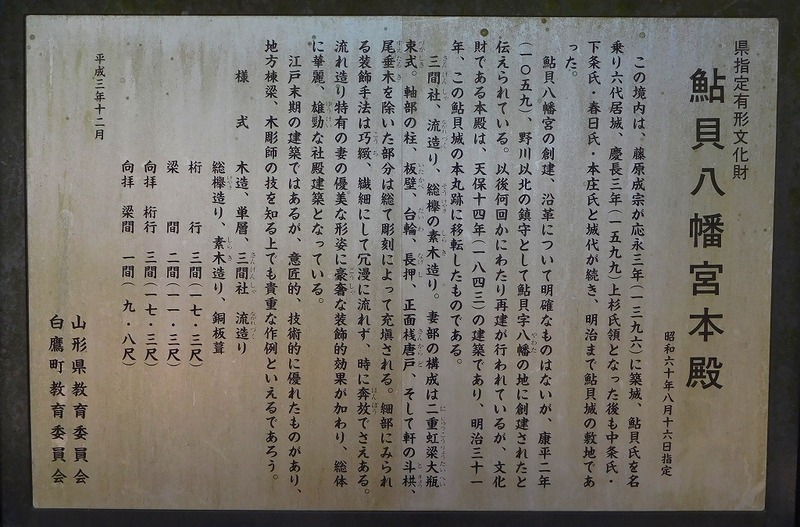 県指定有形文化財
鮎貝八幡宮本殿
昭和六十年八月十六日指定
この境内は、藤原成宗が応永三年（一三九六）に築城、鮎貝氏を名
乗り六代居城、慶長三年（一五九九）上杉氏領となった後も中条氏・
下条氏・春日氏・本庄氏と城代が続き、明治まで鮎貝城の敷地であ
った。
鮎貝八幡宮の創建、沿革について明確なものはないが、康平二年
（一〇五九）、野川以北の鎮守として鮎貝字八幡の地に創建されたと
伝えられている。以後何回かにわたり再建が行われているが、文化
財である本殿は、天保十四年（一八四三）の建築であり、明治三十一
年、この鮎貝城の本丸跡に移転したものである。
三間社、流造り、総欅の素木造り。妻部の構成は二重虹梁大瓶
束式。軸部の柱、板壁、台輪、長押、正面桟唐戸、そして軒の斗栱、
尾垂木を除いた部分は総て彫刻によって充塡される。細部にみられ
る装飾手法は巧緻、繊細にして冗漫に流れず、時に奔放でさえある。
流れ造り特有の妻の優美な形姿に豪奢な装飾的効果が加わり、総体
に華麗、雄勁な社殿建築となっている。
江戸末期の建築ではあるが、意匠的、技術的に優れたものがあり、
地方棟梁、木彫師の技を知る上でも貴重な作例といえるであろう。
様　式　木造、単層、三間社　流造り
総欅造り、素木造り、銅板葺
桁　行　三間（一七・三尺）
梁　間　二間（一一・三尺）
向拝　桁行　三間（一七・三尺）
向拝　梁間　一間（九・八尺）
平成三年十二月
山形県教育委員会
白鷹町教育委員会